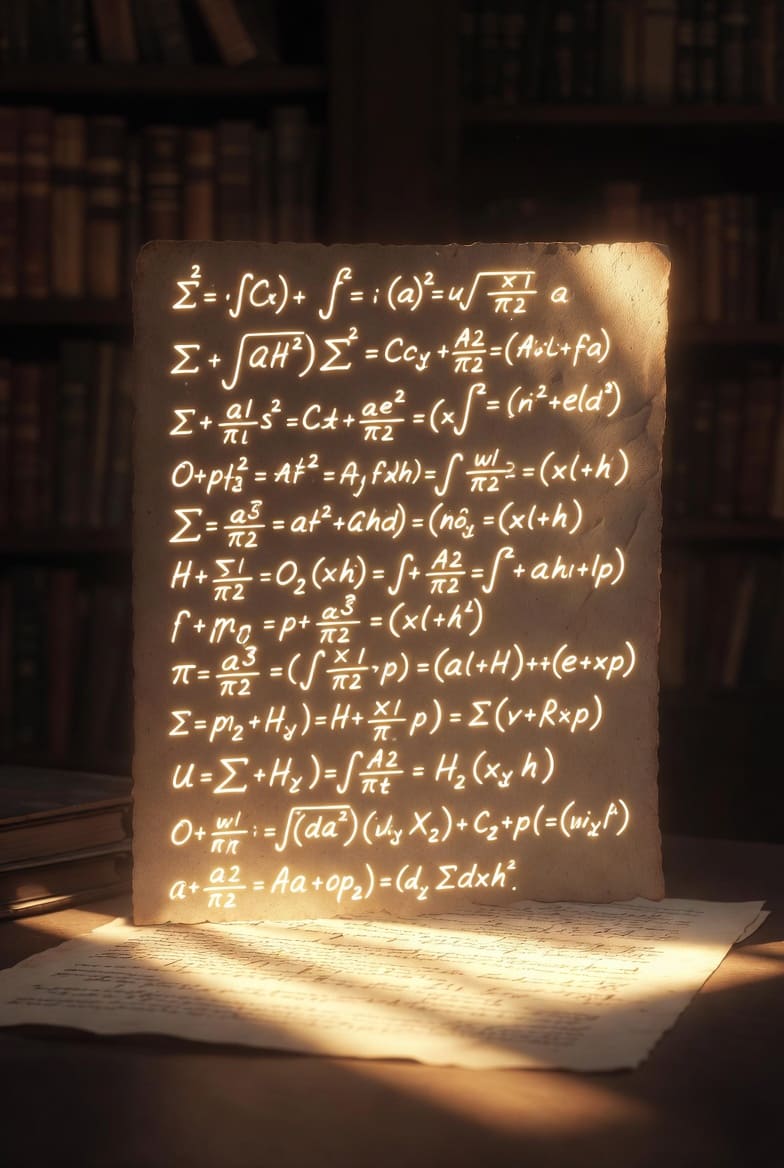 Σ² = ·∫Cx) + ∫² = i (a)² = u√(x1/π2) a
Σ + ∫aH²) Σ² = Ccy + A2/π2 = (A₀L+fa)
Σ + a1/πι s² = Ct + ae²/π2 = (x∫² = (n²+eld²)
O+pt = At² = A, fxh) = ∫ wl/π2 = (xl+h)
Σ = a3/π2 = at²+ahd) = (nôy = (xl+h)
H + Σ1/π2 = O₂(xh) = ∫+ A2/π2 = ∫²+ahı+lp)
f+m₀ = p + a3/π2 = (xl+h²)
π = a3/π2 = (∫ x1/π2, p) = (al+H)++(e+xp)
Σ = m₂+Hy) = H + x1/π p) = Σ(v+Rxp)
u = Σ + Hy) = ∫ A2/πt = H₂(xy h)
O + wl/ππ : = √(da²) X₂) + C₂ + p(=
a + a2/π2 = Aa+op₂) = (dy Σdxh².